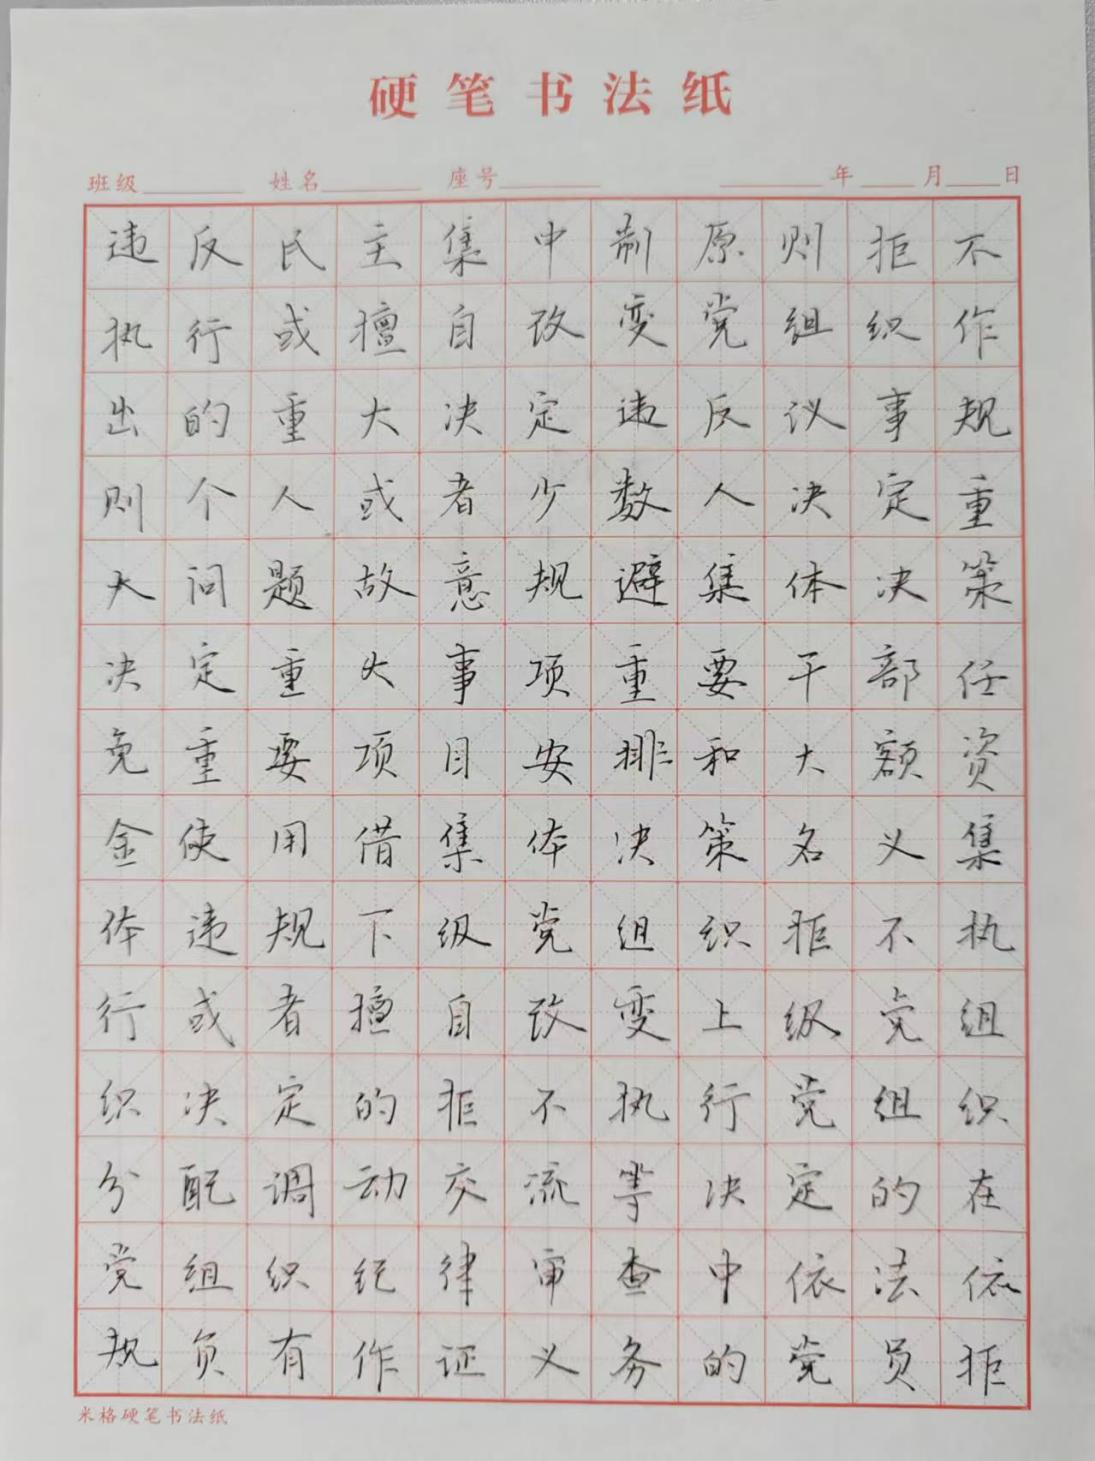 硬笔书法纸
班级 姓名 座号 年 月 日
违反民主集中制原则拒不
执行或擅自改变党组织作
出的重大决定违反议事规
则个人或者少数人决定重
大问题故意规避集体决策
决定重大事项重要干部任
免重要项目安排和大额资
金使用借集体决策名义集
体违规下级党组织拒不执
行或者擅自改变上级党组
织决定的拒不执行党组织
分配调动交流等决定的在
党组织纪律审查中依法依
规负有作证义务的党员拒
米格硬笔书法纸